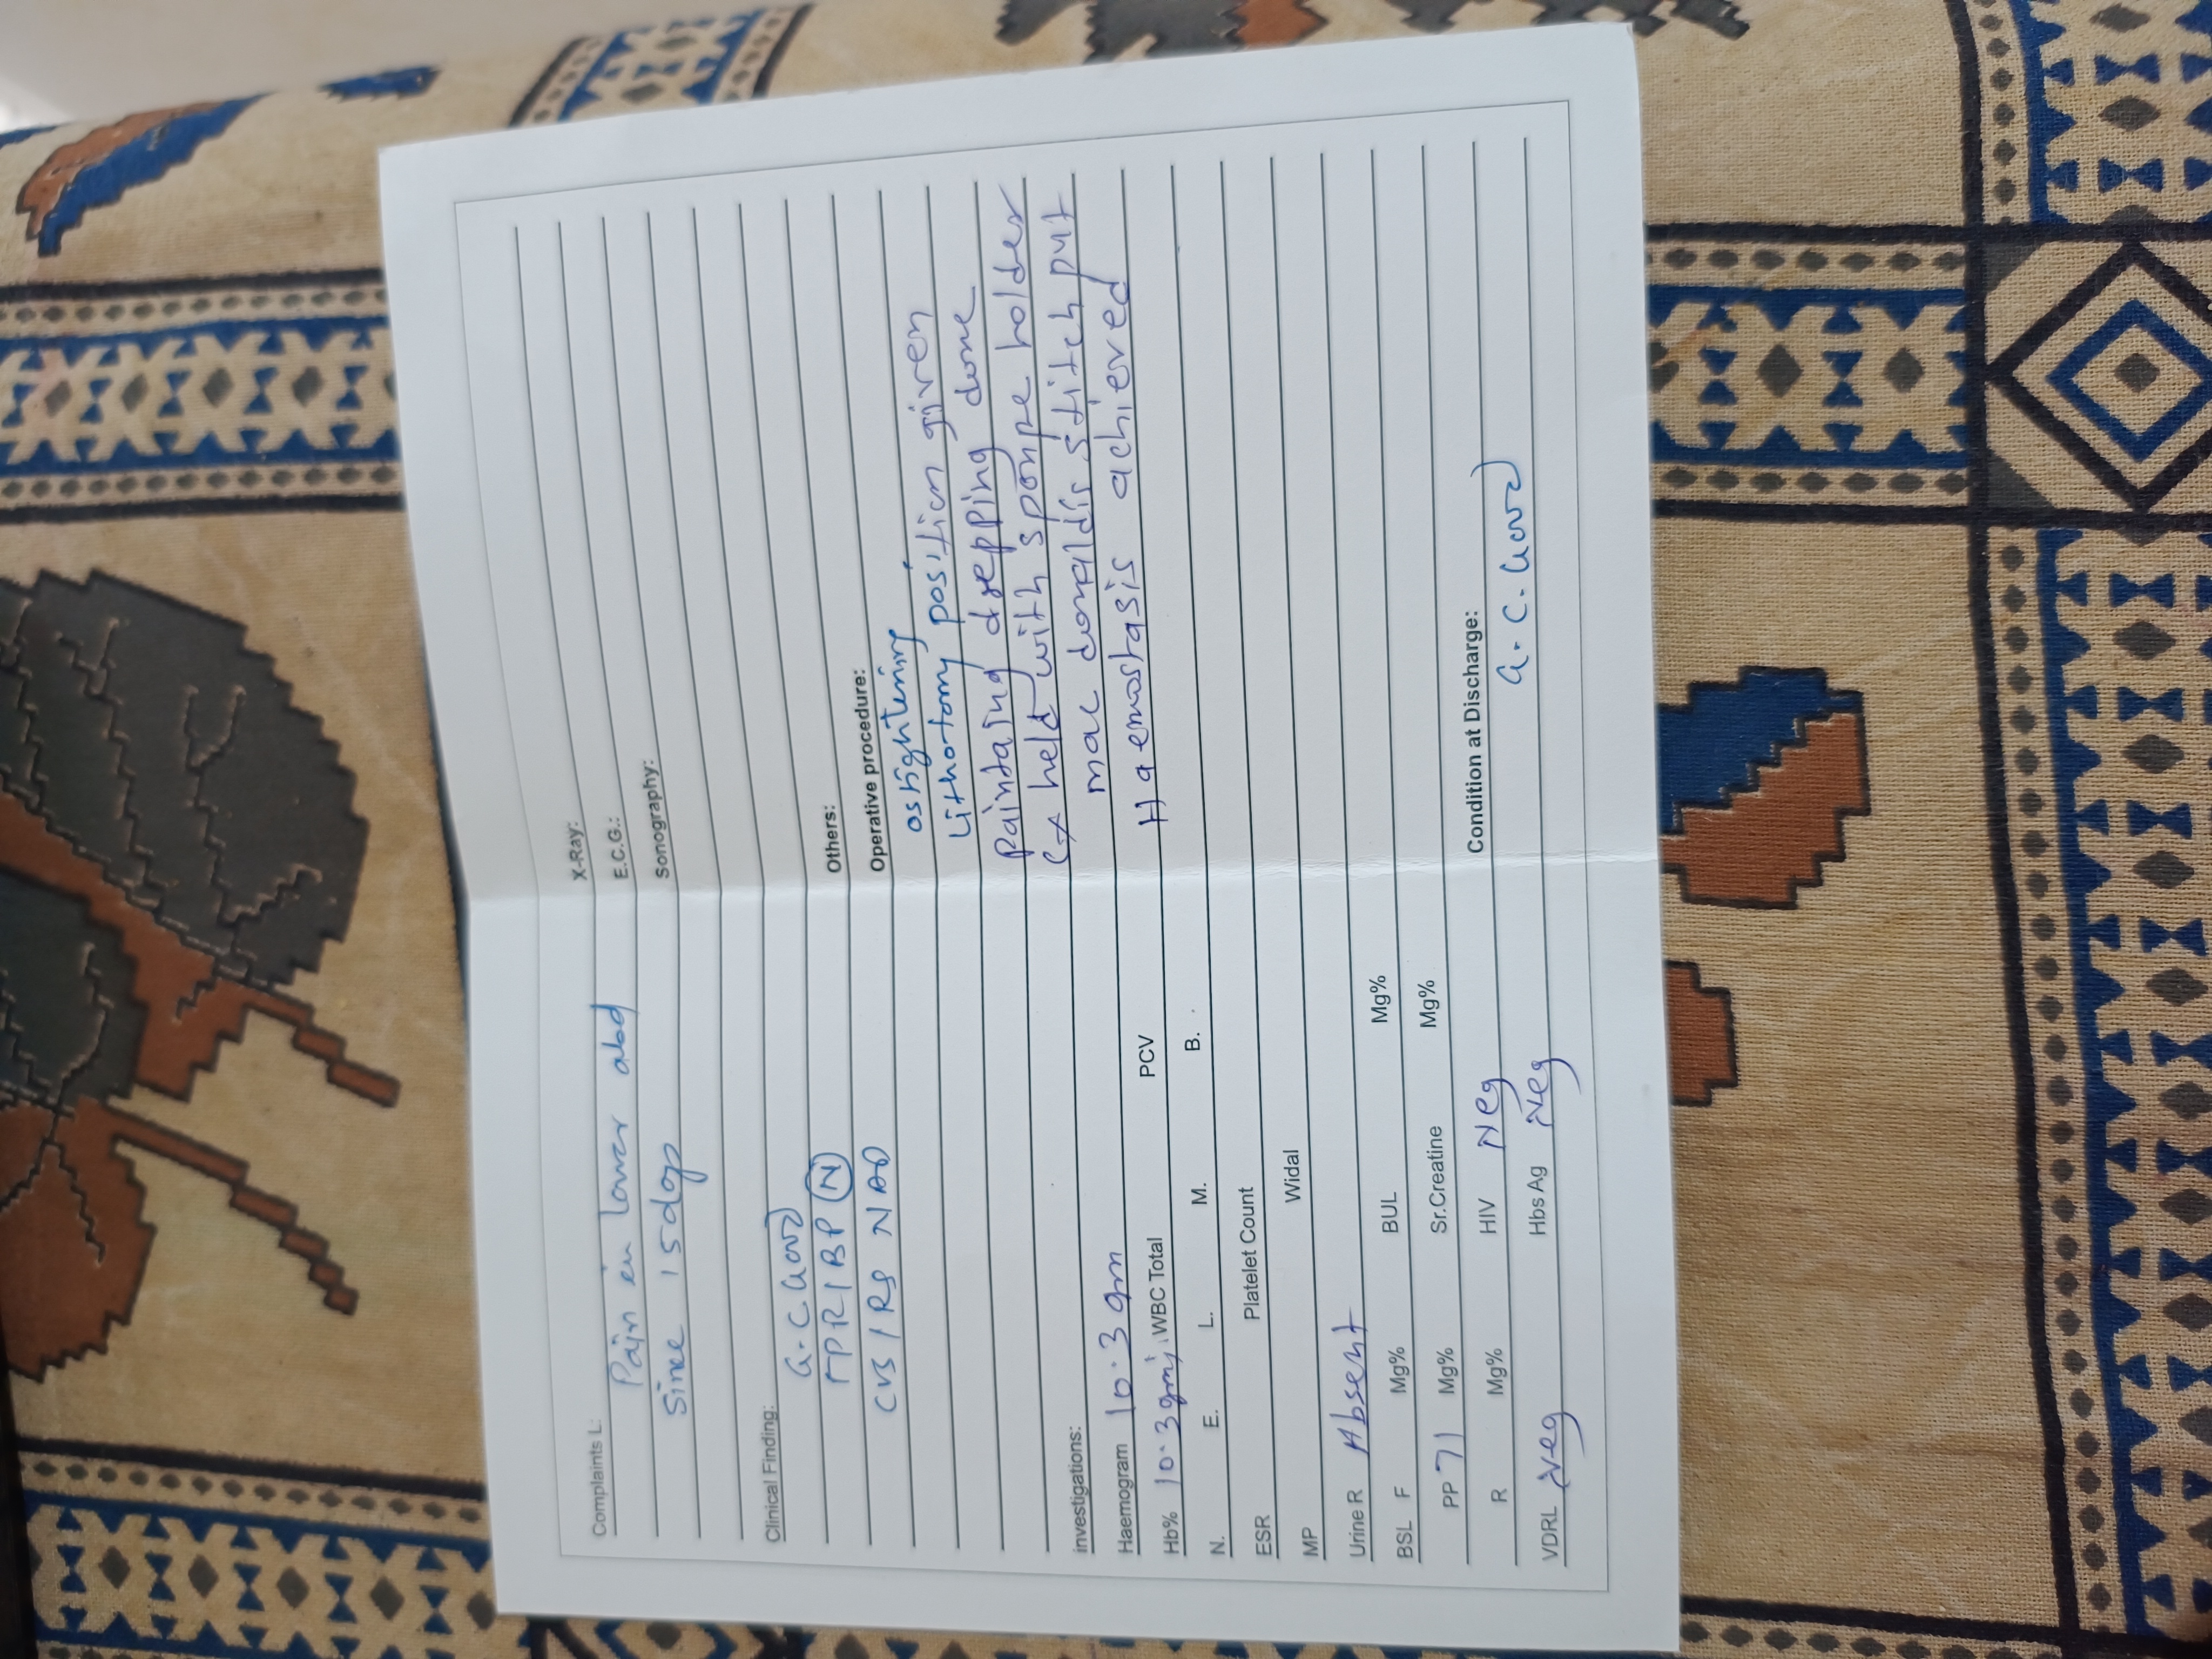 Complaints L:
Pain in lower abd
since 15 days
Clinical Finding:
G.C Good
TPR/BP N
CVS/RS NAD
investigations:
Haemogram 10.3 gm
Hb% 10.3 gm; WBC Total PCV
N. E. L. M. B.
ESR Platelet Count
MP Widal
Urine R Absent
BSL F Mg% BUL Mg%
PP 71 Mg% Sr.Creatine Mg%
R Mg% HIV Neg
VDRL Neg Hbs Ag Neg
X-Ray:
E.C.G.:
Sonography:
Others:
Operative procedure:
os tightening
Lithotomy position given
Paintaing drepping done
Cx held with sponpe holder
mac donaldis stitch put
Haemostasis achieved
Condition at Discharge:
G. C. Good